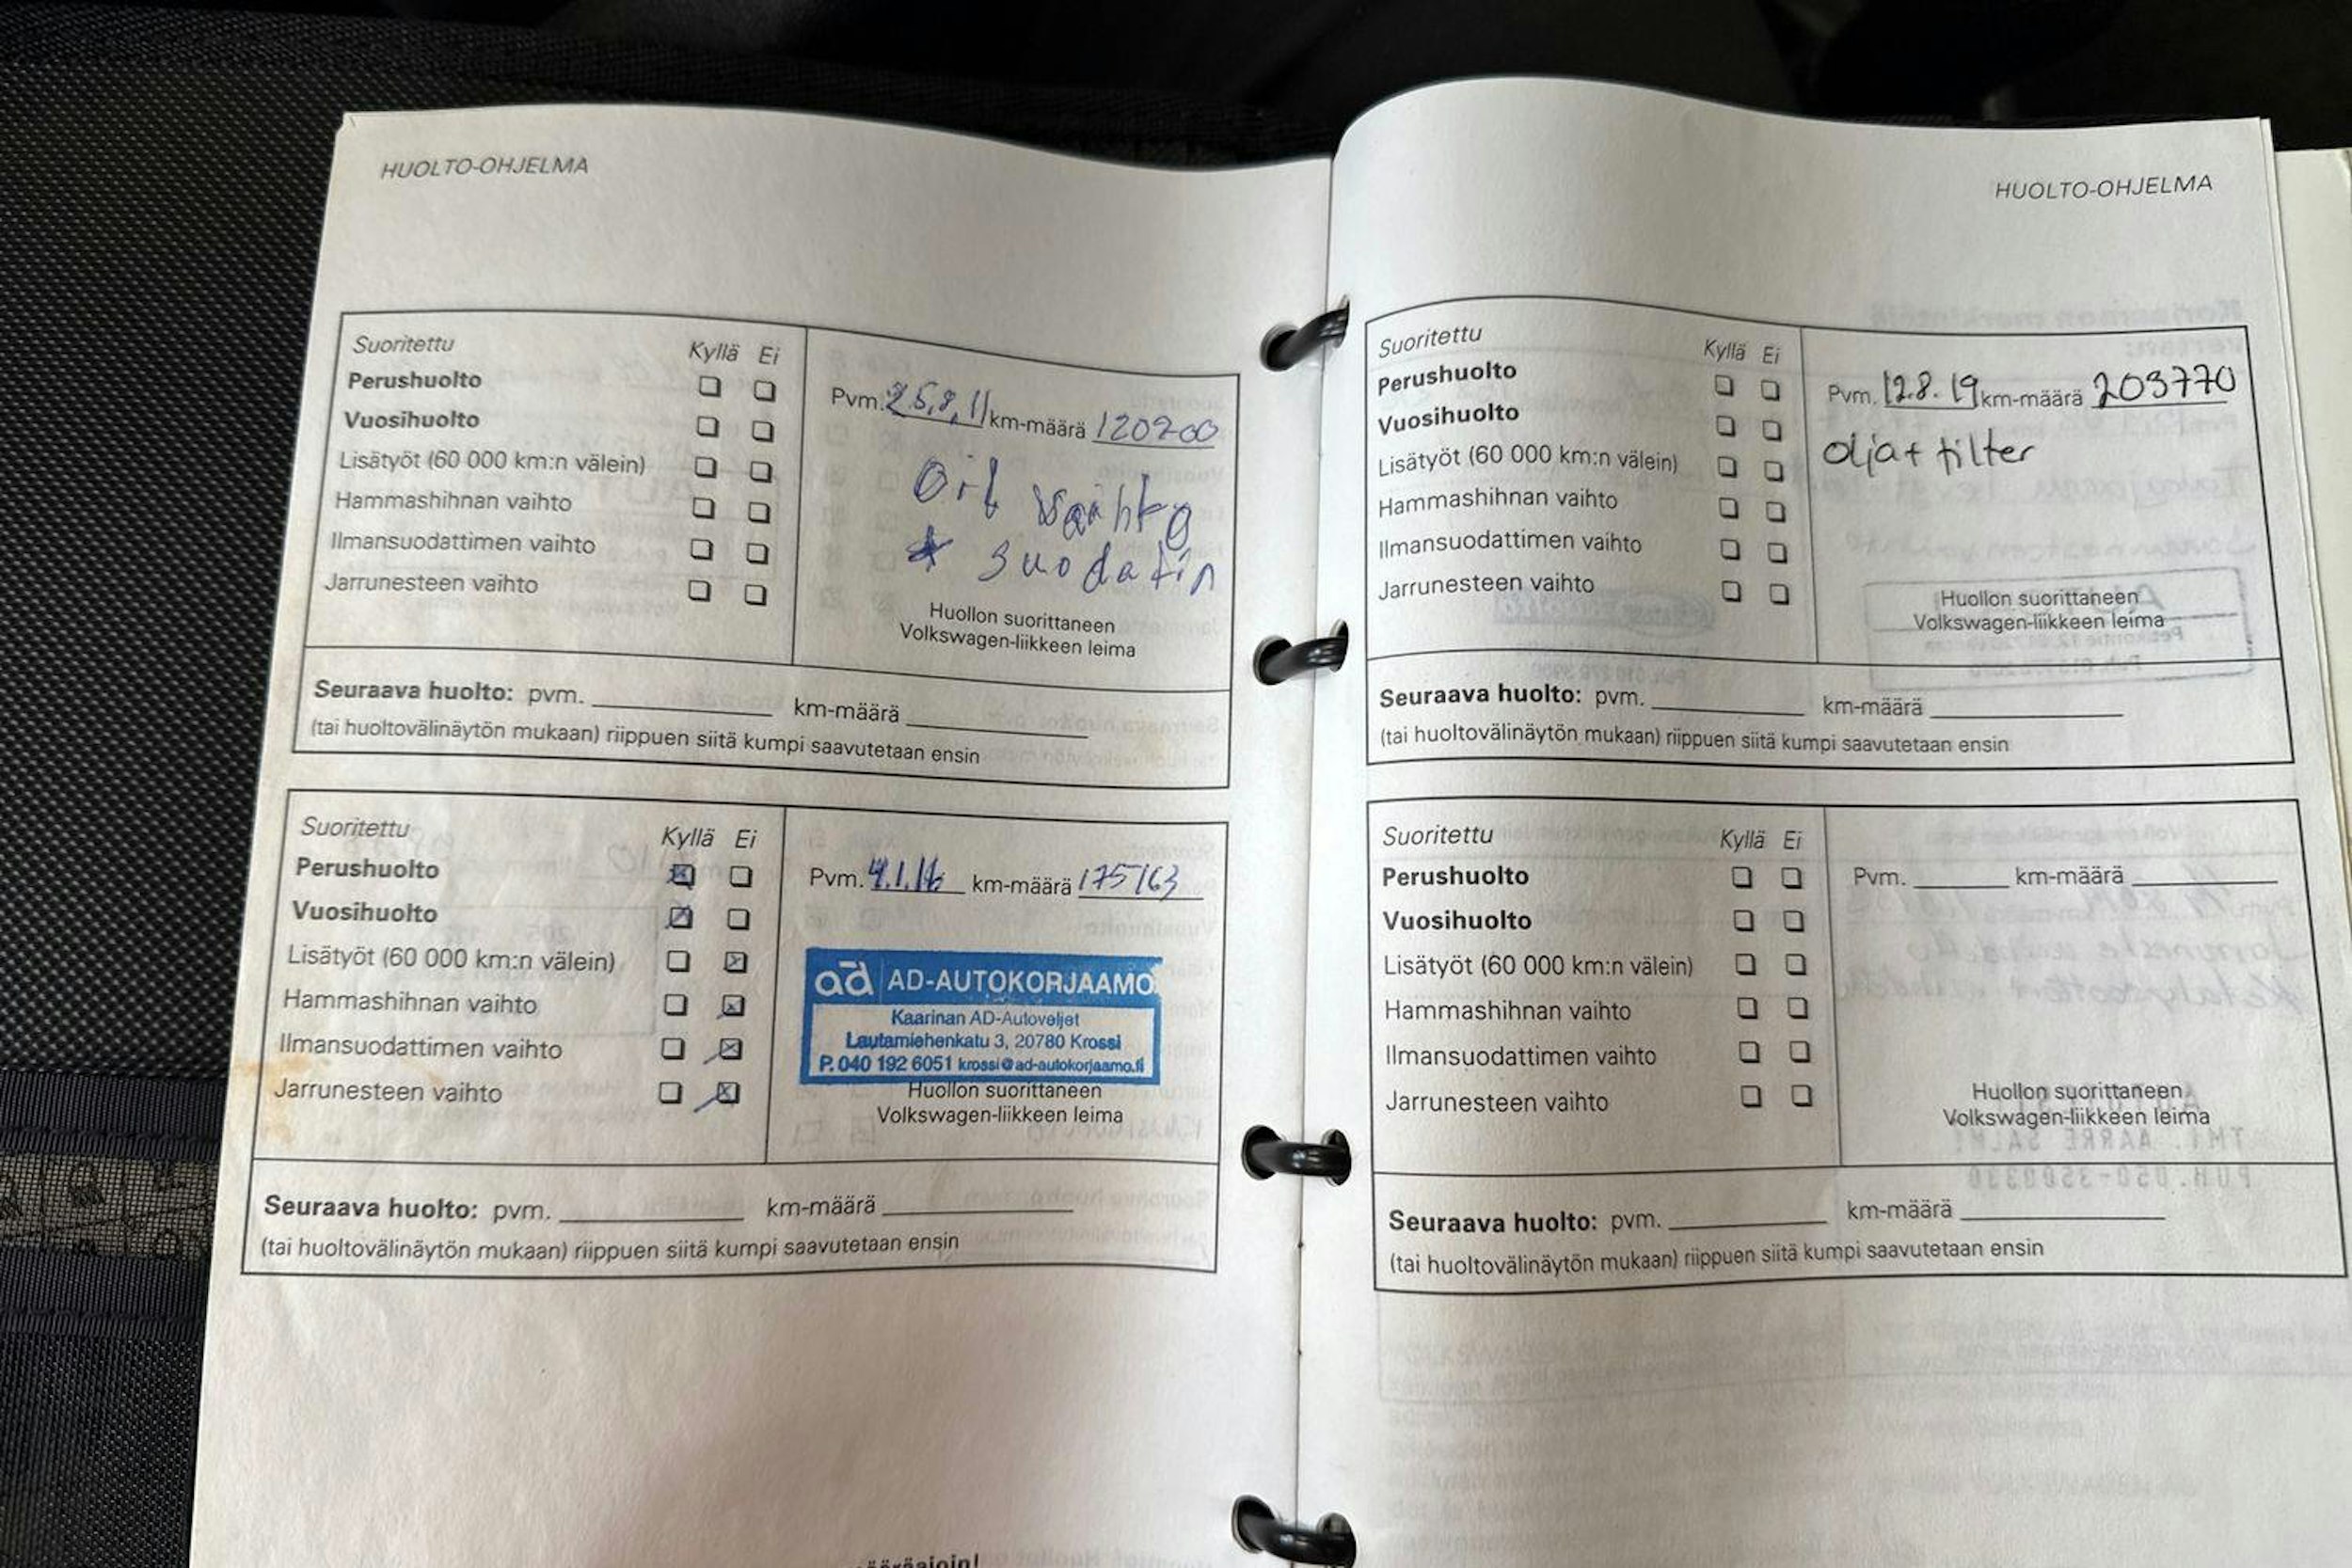 HUOLTO-OHJELMA
Suoritettu Kyllä Ei
Perushuolto
Vuosihuolto
Lisätyöt (60 000 km:n välein)
Hammashihnan vaihto
Ilmansuodattimen vaihto
Jarrunesteen vaihto
Pvm. 25,8,11 km-määrä 120200
Oil vaihto
suodatin
Huollon suorittaneen
Volkswagen-liikkeen leima
Seuraava huolto: pvm. km-määrä
(tai huoltovälinäytön mukaan) riippuen siitä kumpi saavutetaan ensin
Suoritettu Kyllä Ei
Perushuolto
Vuosihuolto
Lisätyöt (60 000 km:n välein)
Hammashihnan vaihto
Ilmansuodattimen vaihto
Jarrunesteen vaihto
Pvm. 4.1.16 km-määrä 175163
ad AD-AUTOKORJAAMO
Kaarinan AD-Autoveljet
Lautamiehenkatu 3, 20780 Krossi
P. 040 192 6051 krossi@ad-autokorjaamo.fi
Huollon suorittaneen
Volkswagen-liikkeen leima
Seuraava huolto: pvm. km-määrä
(tai huoltovälinäytön mukaan) riippuen siitä kumpi saavutetaan ensin
HUOLTO-OHJELMA
Suoritettu Kyllä Ei
Perushuolto
Vuosihuolto
Lisätyöt (60 000 km:n välein)
Hammashihnan vaihto
Ilmansuodattimen vaihto
Jarrunesteen vaihto
Pvm. 12.8.19 km-määrä 203770
olja + filter
Huollon suorittaneen
Volkswagen-liikkeen leima
Seuraava huolto: pvm. km-määrä
(tai huoltovälinäytön mukaan) riippuen siitä kumpi saavutetaan ensin
Suoritettu Kyllä Ei
Perushuolto
Vuosihuolto
Lisätyöt (60 000 km:n välein)
Hammashihnan vaihto
Ilmansuodattimen vaihto
Jarrunesteen vaihto
Pvm. km-määrä
Huollon suorittaneen
Volkswagen-liikkeen leima
Seuraava huolto: pvm. km-määrä
(tai huoltovälinäytön mukaan) riippuen siitä kumpi saavutetaan ensin